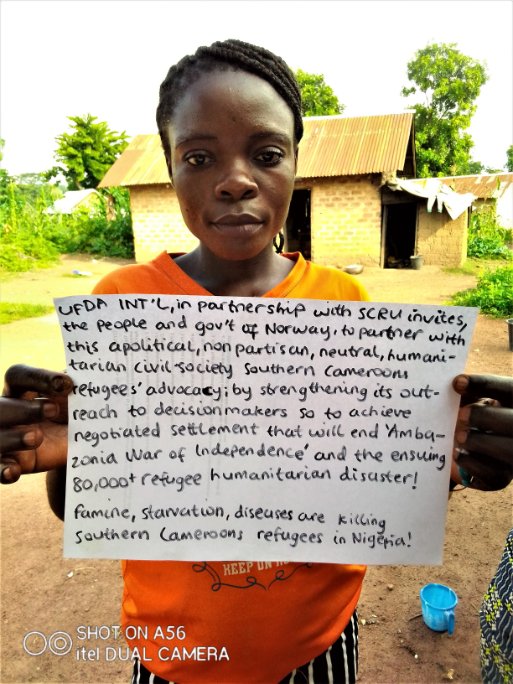 UFDA INT'L, in partnership with SCRU invites,
the people and gov't of Norway, to partner with
this apolitical, nonpartisan, neutral, humani-
tarian civil-society Southern Cameroons
refugees' advocacy; by strengthening its out-
reach to decisionmakers so to achieve
negotiated settlement that will end 'Amba-
zonia War of Independence' and the ensuing
80,000+ refugee humanitarian disaster!
Famine, starvation, diseases are killing
Southern Cameroons refugees in Nigeria!
KEEP ON
SHOT ON A56
itel DUAL CAMERA